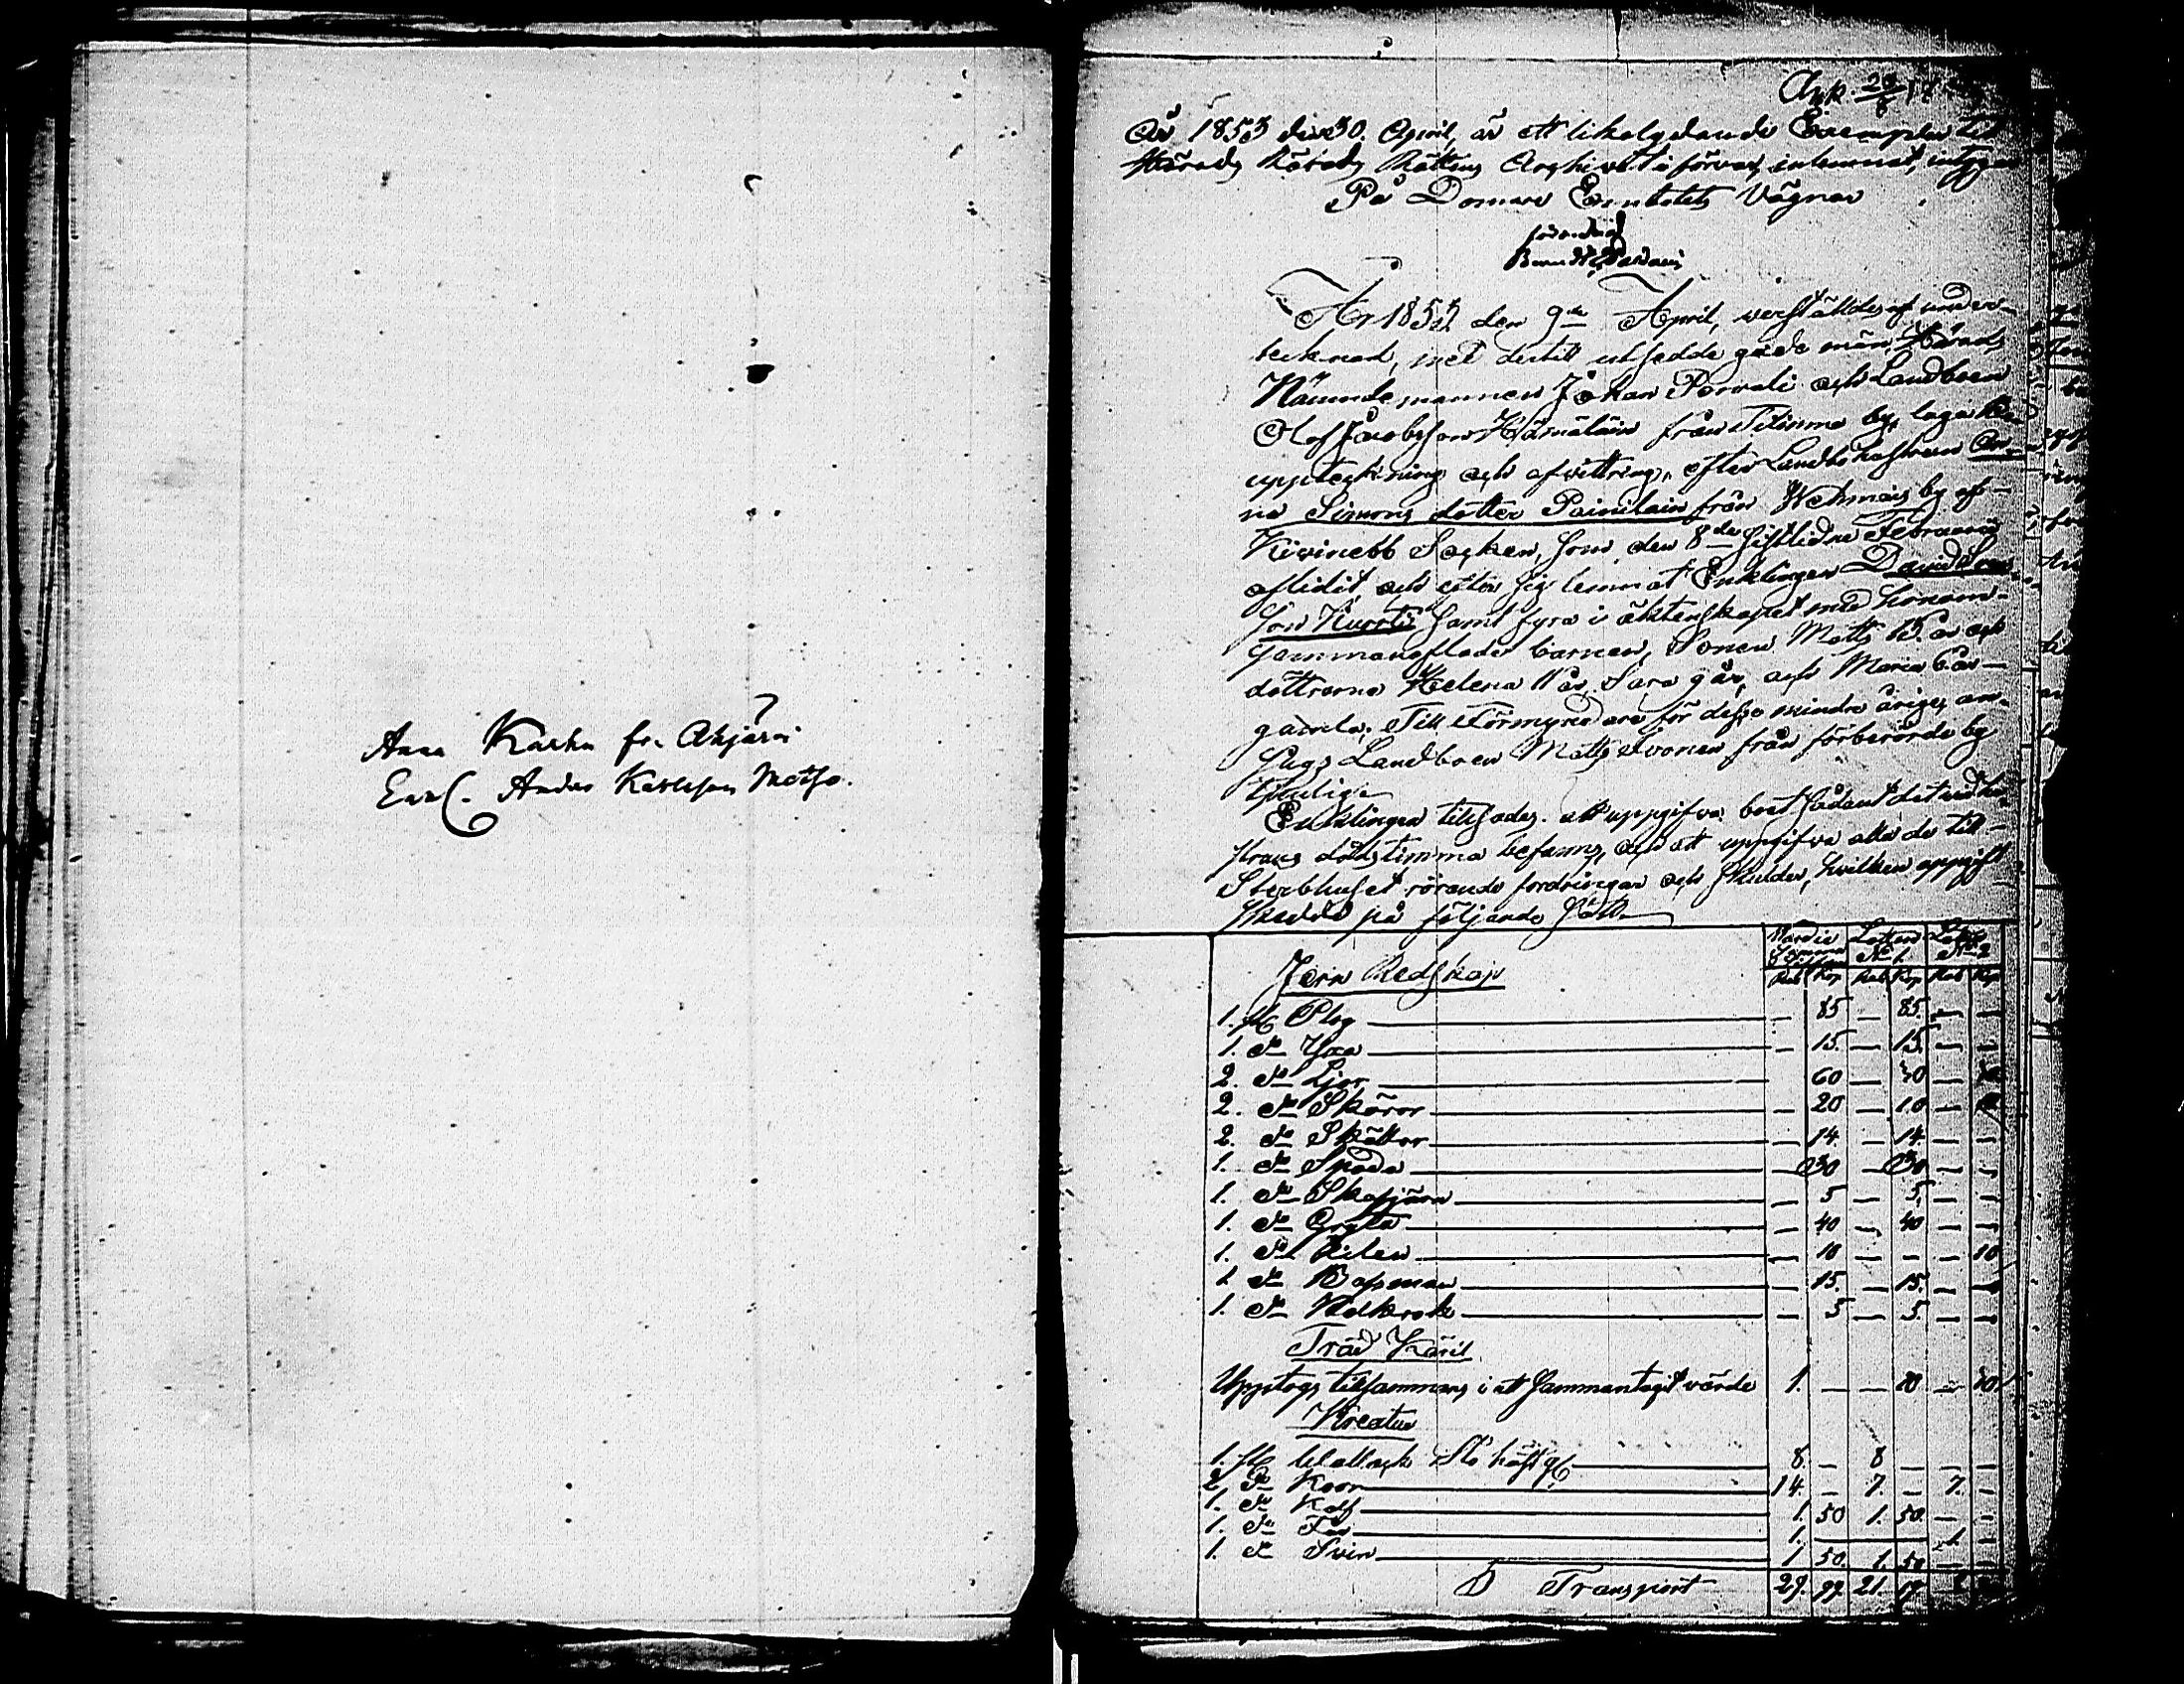 Anna Karhu fr. Ahjärvi
Enkl. Anders Karlsson Motso.
Ank. 29/6
År 1853 den 30. April, är ett likalydande Exemplar till
Härads Rättens Archivet i förvar, inlemnat, intygar
På Domare Embetets Vägnar
År 1853 den 9de April, verställdes af under-
tecknad, med dertill utsedde gode män, Härads
Nämndemannen Johan Porvali och Landboen
Olof Jacobsson Hämäläin från Titinma by, laga Bo-
uppteckning och afvittring, efter Landbohustrun An-
na Simons dotter Painilain från Wehmais by af
Kivinebb Socken, som den 8de sistledne Februarii
aflidit, och efter sig lemnat Enklingen David
son Kuorti samt fyra i äktenskapet med honom
sammanaflade barnen, Sonen Matts 15 år och
döttrarne Helena 11 år, Sara 9 år, och Maria 6 år
gamla. Till Förmyndare för desse minderårige, an-
sågs Landboen Matts Ivonen från förberörde by
tjenlig.
Enklingen tillsades att uppgifva boet sådant det vid hu-
struns dödstimma befanns, och att uppgifva alla de till
Sterbhuset rörande fordringar och skulder, hvilken uppgift
skedde på följande sätt
Värde i Lotten Lotten
Silfver N:o 1 N:o 2
Jern Redskap Rub Kop Rub Kop Rub Kop
1. st Plog — 85 — 85. — —
1. d:o Yxa — 15. — 15. — —
2. d:o Liar — 60 — 30 — 30
2. d:o Skäror — 20 — 10 — 10
2. d:o Skättor — 14. — 14 — —
1. d:o Spada — 30 — 30 — —
1. d:o Skafjärn — 5 — 5. — —
1. d:o Gryta — 40 — 40 — —
1. d:o Bilen — 10 — — — 10
1. d:o Bossman — 15. — 15. — —
1. d:o Kolkrok — 5 — 5. — —
Träd Käril
Upptogs tillsammans i ett sammantagit värde 1. — — 80 — 20
Kreatur
1. st Wallack Stö häst 8. — 8 — — —
2. d:o Koor 14. — 7. — 7. —
1. d:o Kalf 1. 50 1. 50. — —
1. d:o Får 1. — — — 1. —
1. d:o Svin 1 50. 1. 50 — —
Transport 29. 99. 21. 19